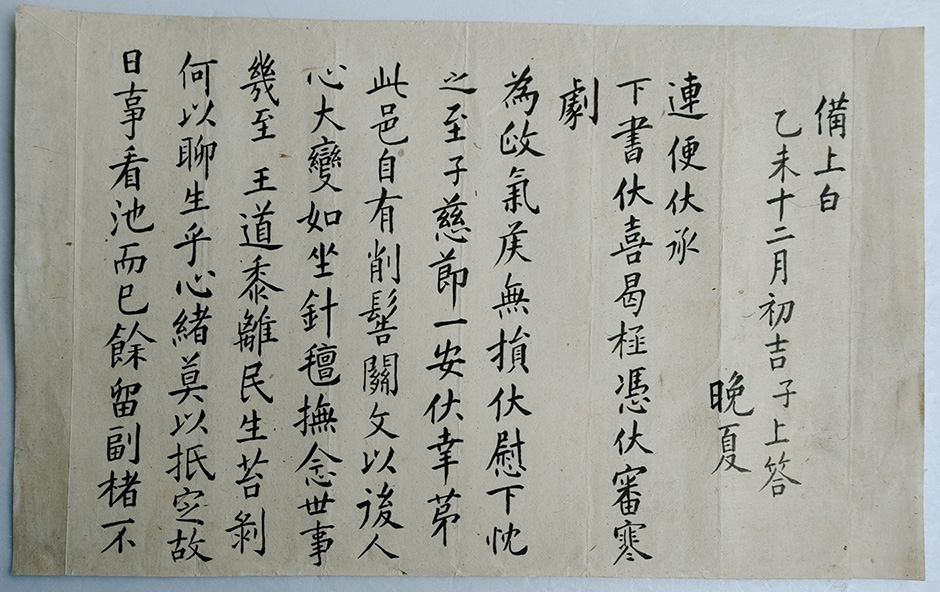 備上白
乙未十二月初吉子上答
晩夏
連便伏承
下書伏喜曷極憑伏審寒
劇
為政氣候無損伏慰下忱
之至子慈節一安伏幸苐
此邑自有削髻關文以後人
心大變如坐針氊撫念世事
幾至 王道黍離民生苔剝
何以聊生乎心緒莫以抵定故
日事看池而已餘留副楮不